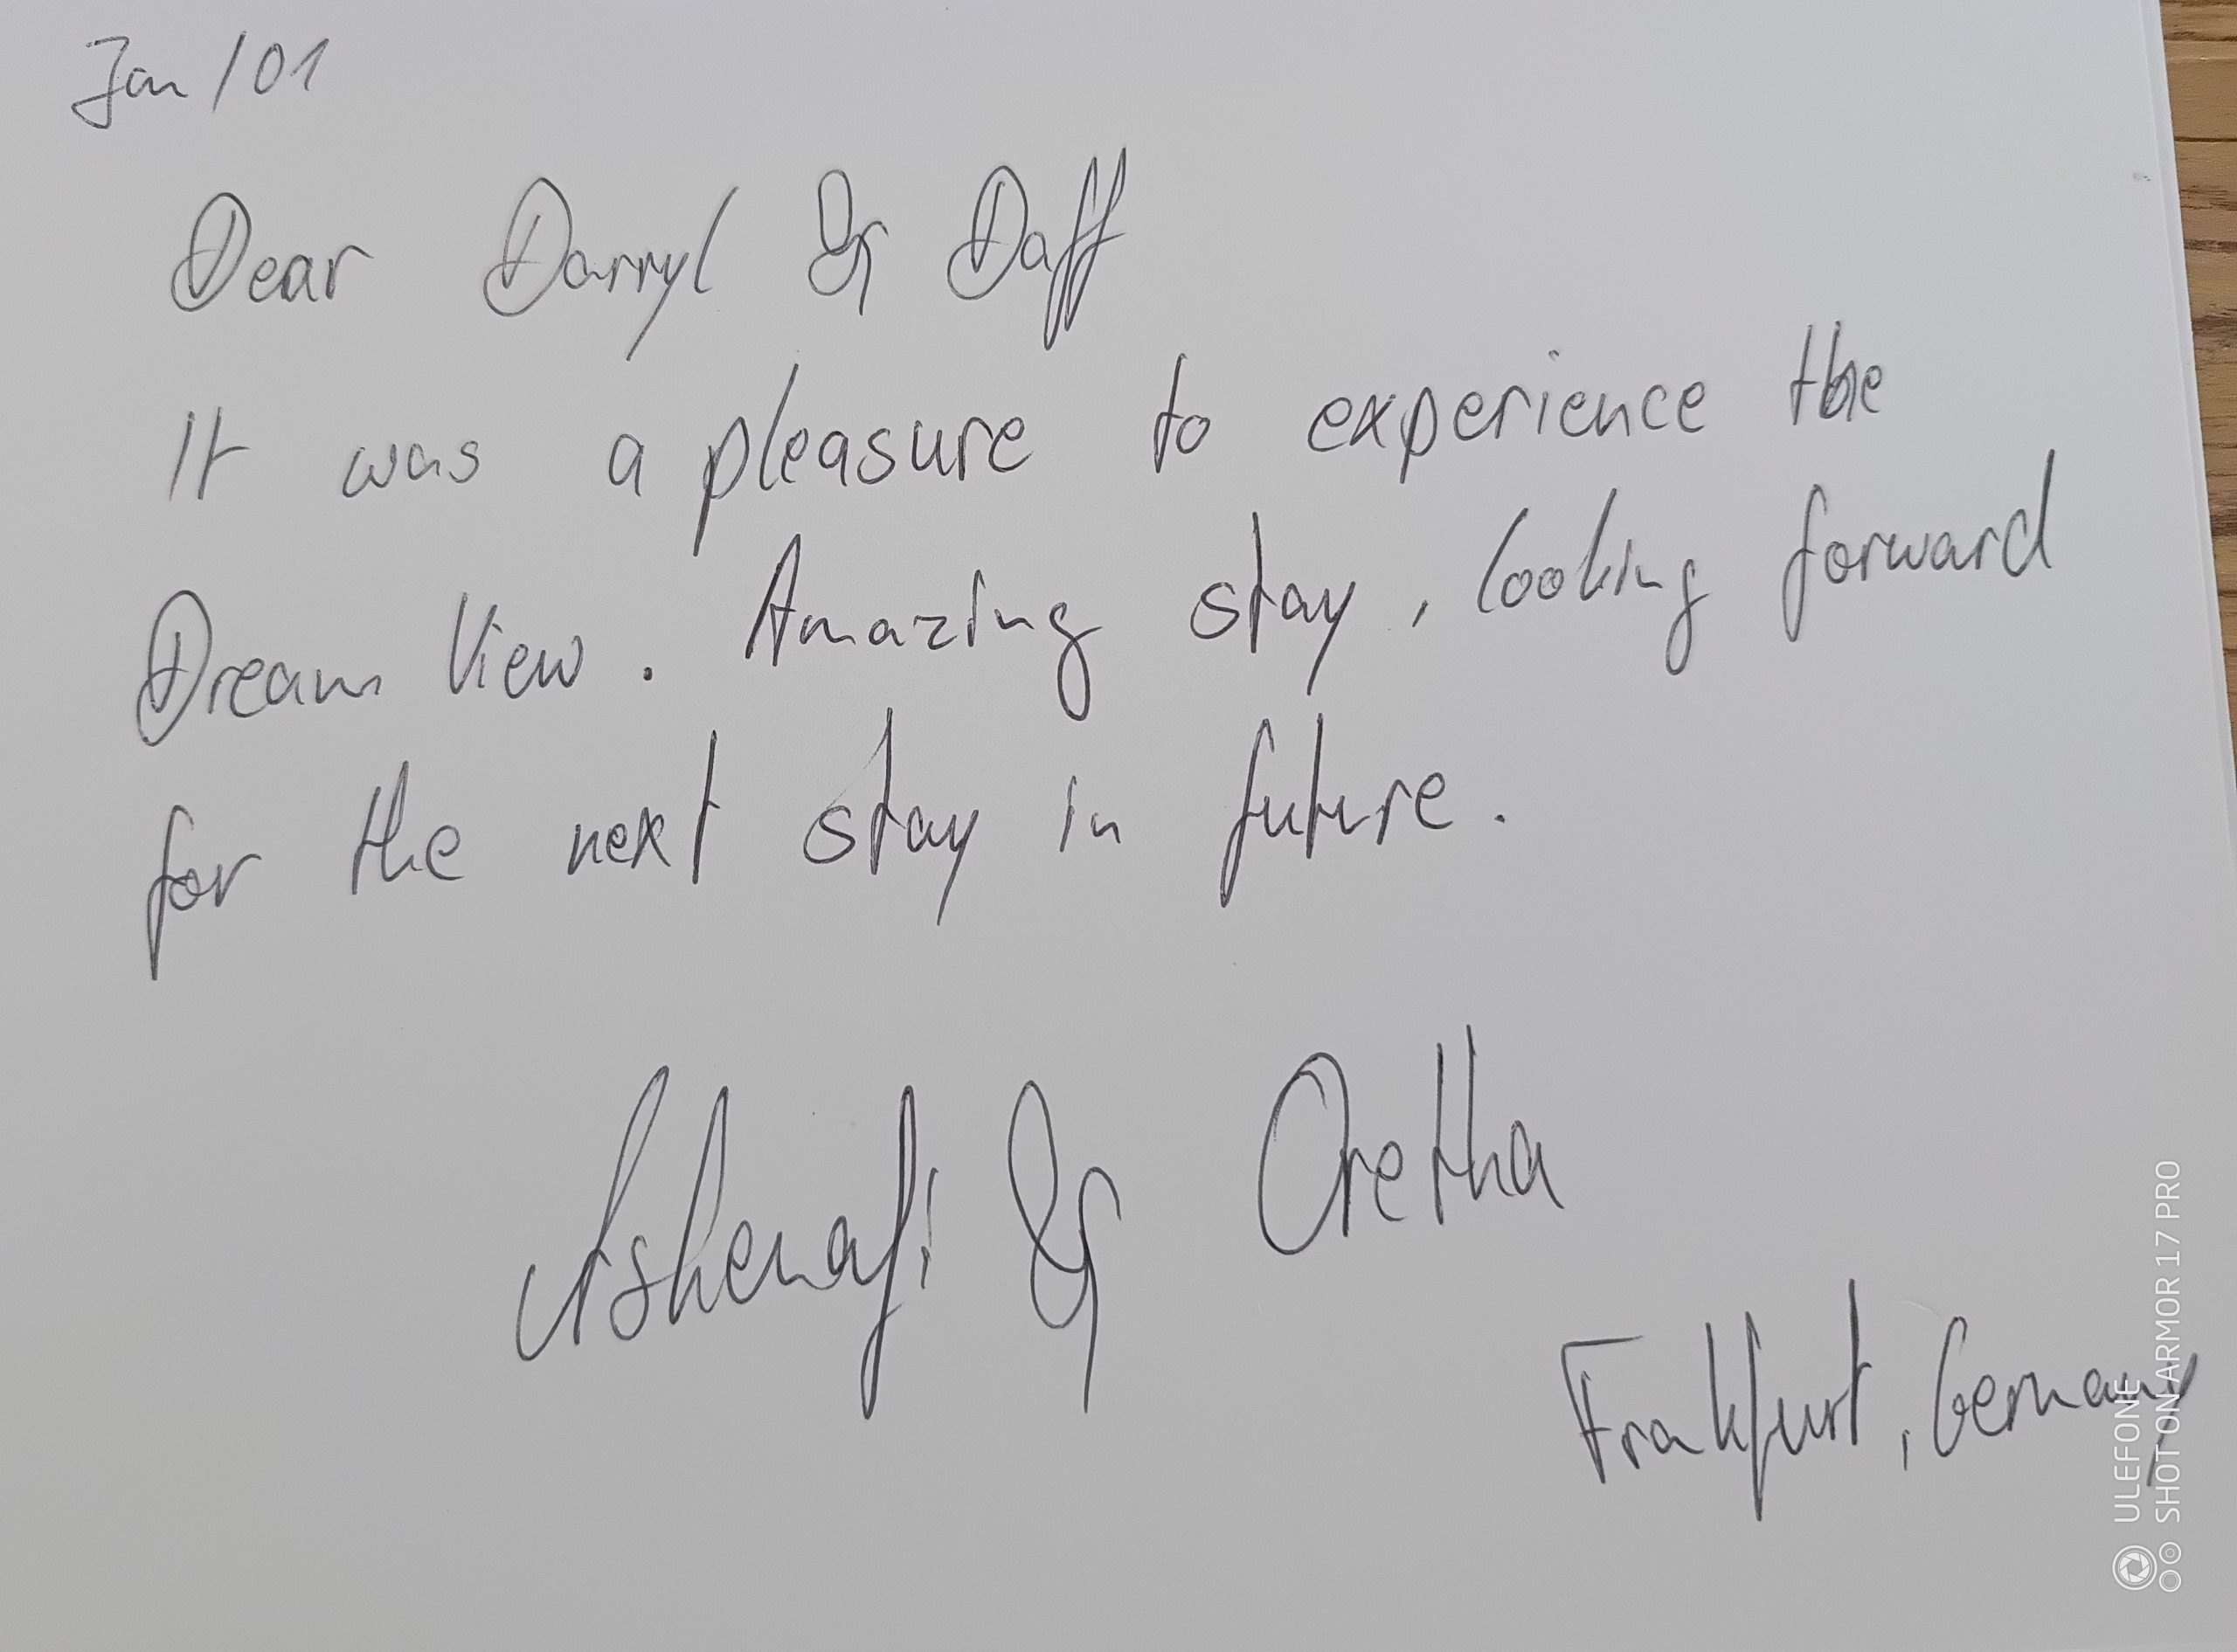 Jan/01
Dear Darryl & Daff
It was a pleasure to experience the
Dream View. Amazing stay, looking forward
for the next stay in future.
Ashenafi & Oretha
Frankfurt, Germany
ULEFONE
SHOT ON ARMOR 17 PRO